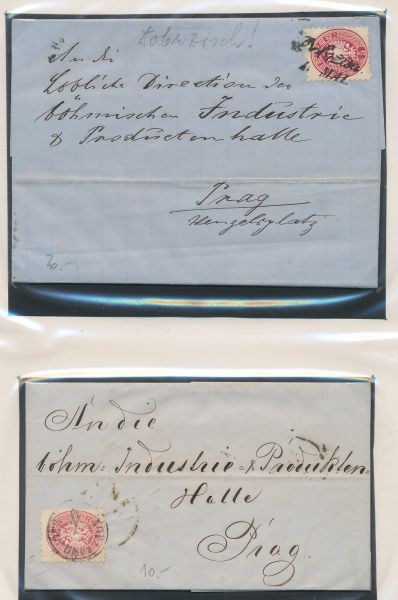 Koberzisch!
An die
Löbliche Direction der
böhmischen Industrie
& Productenhalle
Prag
Wenzelsplatz
MAI
30.-
An die
böhm: Industrie = & Produkten=
Halle
Prag.
10.-